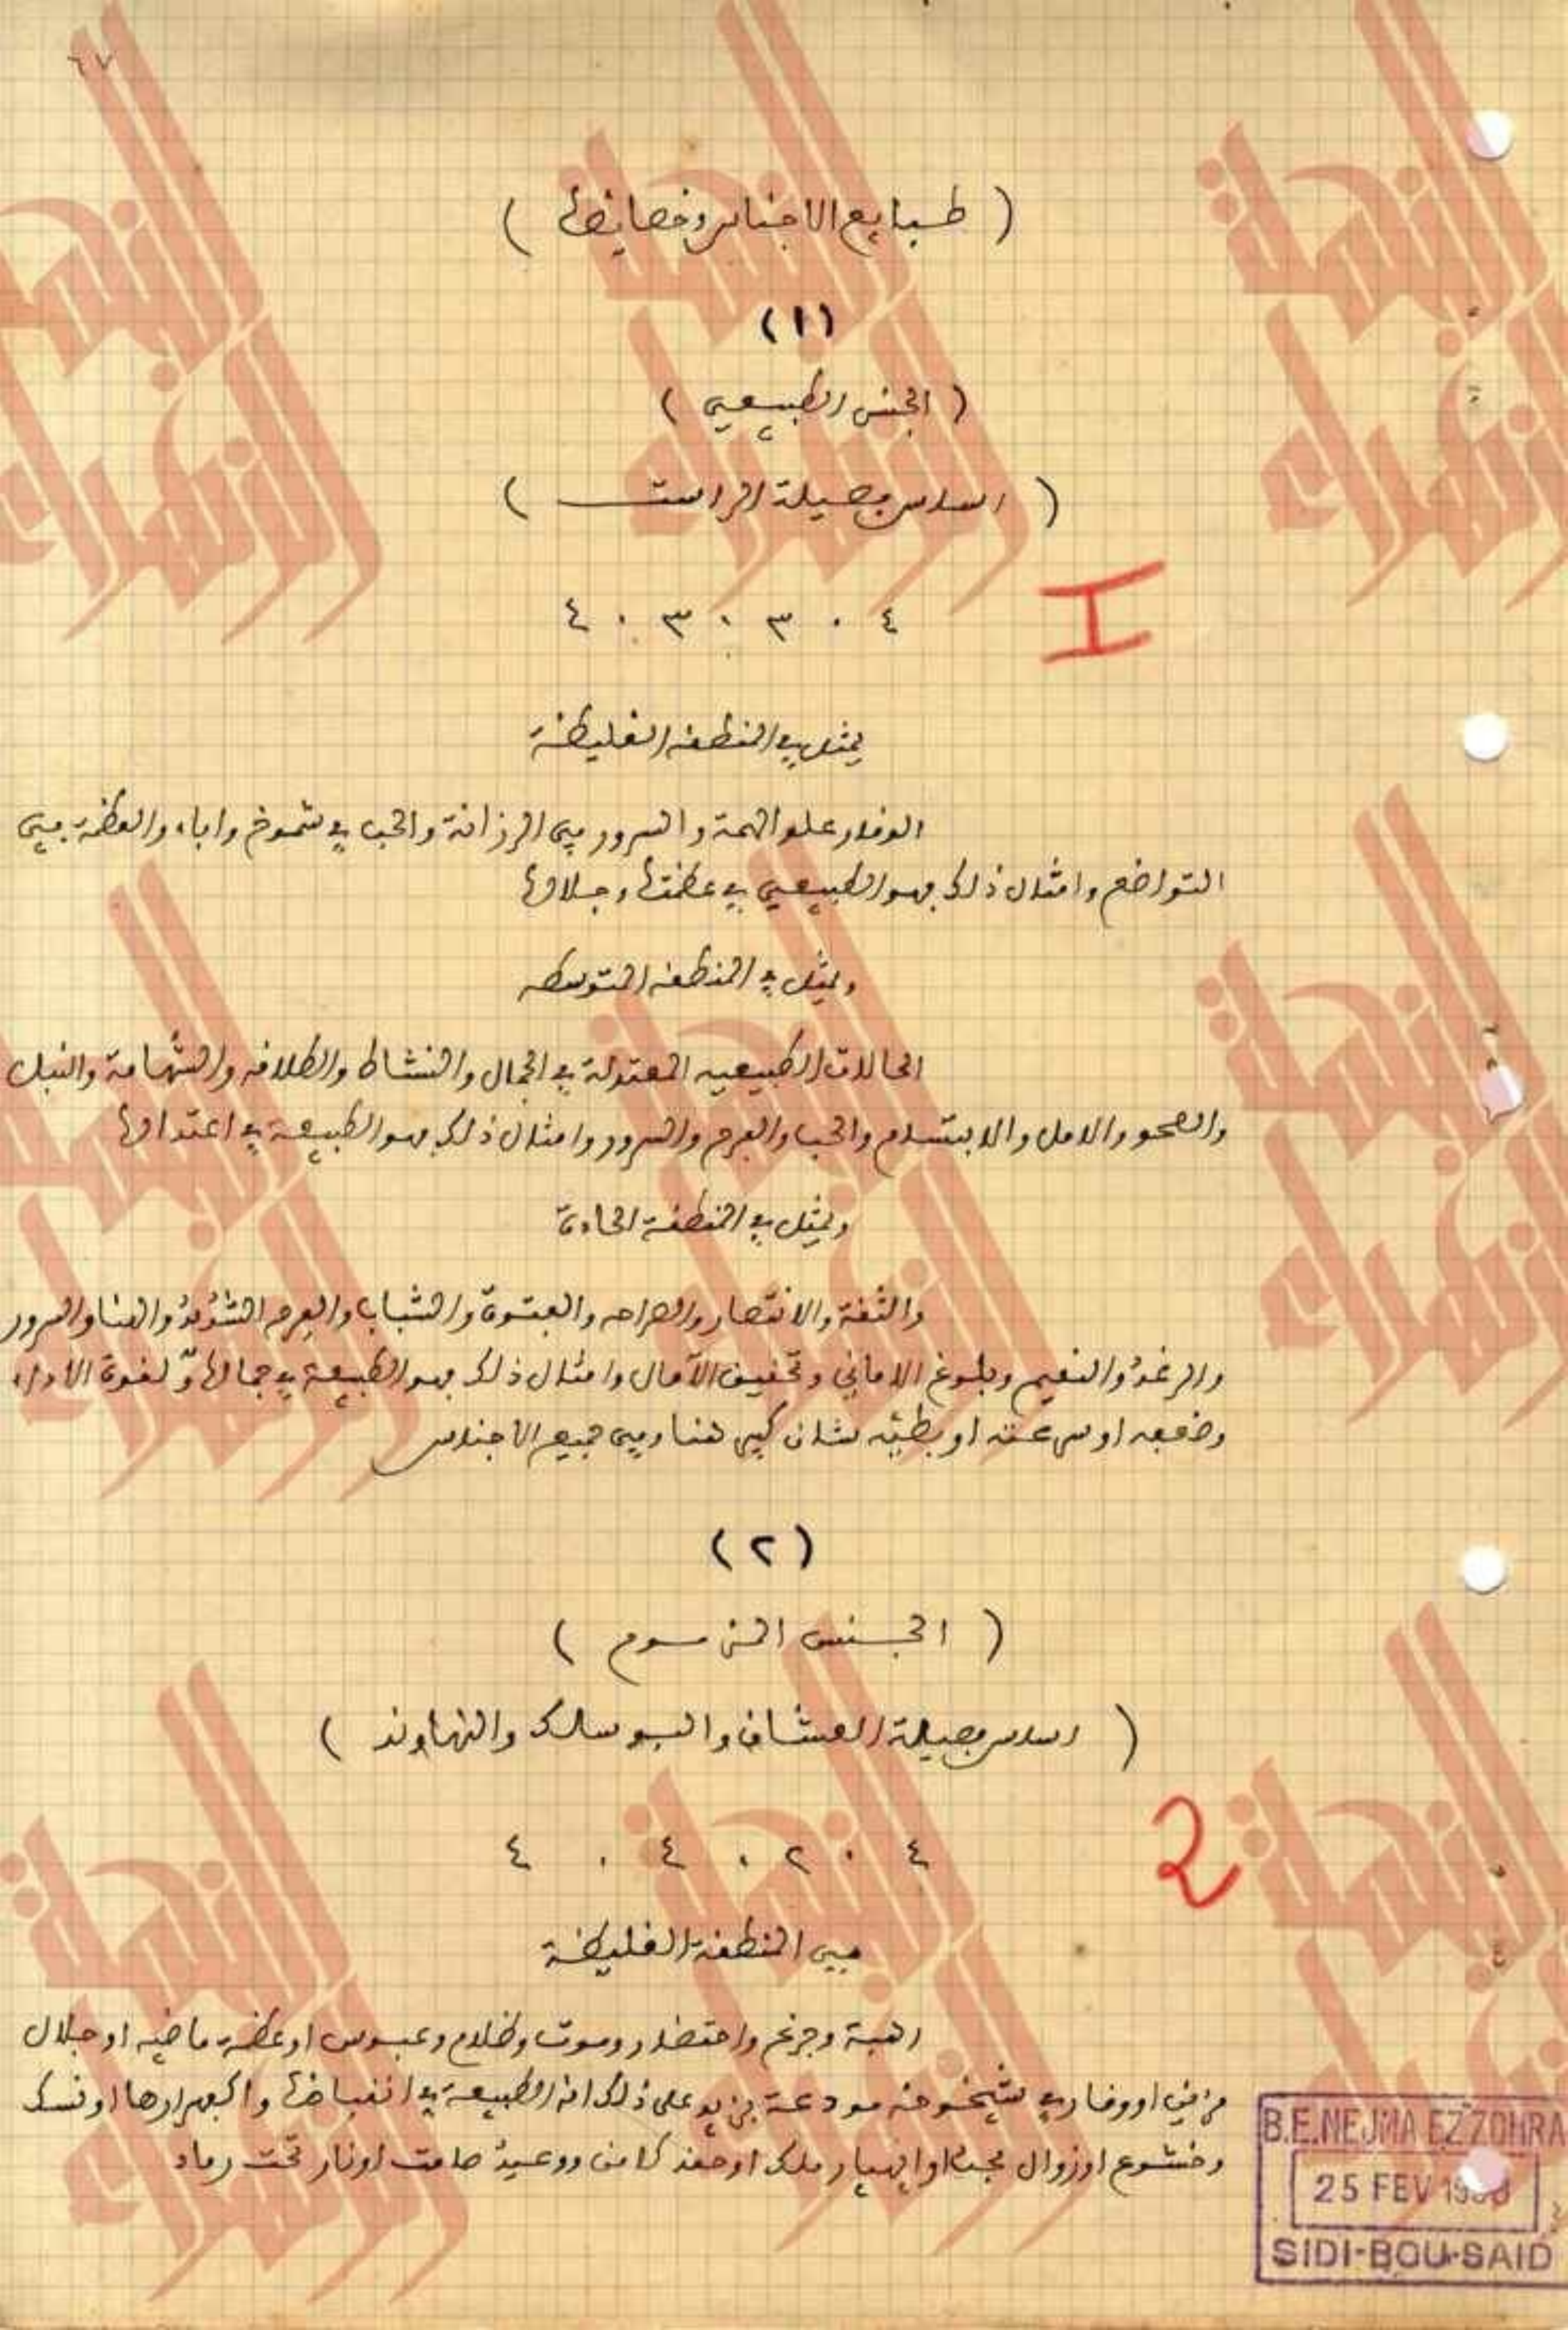 ٦٧
( طبايع الاجناس وخصايصها )
(١)
( الجنس الطبيعي )
( اساس فصيلة الراست )
٤ . ٣ . ٣ . ٤
I
يمثل في المنطقة الغليظة
الوقار علو الهمة والسرور في الرزانة والحب في شموخ واباء والعظمة في
التواضع وامثال ذلك فهو الطبيعي في عظمتها وجلالها
ويمثل في المنطقة المتوسطه
الحالات الطبيعيه المعتدلة في الجمال والنشاط والطلاقه والشهامة والنبل
والصحو والامل والابتسام والحب والفرح والسرور وامثال ذلك فهو الطبيعة في اعتدالها
ويمثل في المنطقة الحادة
والثقة والانتصار والصراحه والفتوة والشباب والفرح الشديد والهنا والسرور
والرغد والنعيم وبلوغ الاماني وتحقيق الآمال وامثال ذلك فهو الطبيعة في جمالها ولقوة الاداء
وضعفه او سرعته او بطئه شان كبير هنا وفي جميع الاجناس
(٢)
( الجنس المزموم )
( اساس فصيلة العشاق والبوسالك والنهاوند )
٤ . ٢ . ٤ . ٤
2
في المنطقة الغليظة
رهبة وجزع واحتضار وموت وظلام وعبوس او عظمة ماضيه او جلال
او وقار في شيخوخة مودعة يزيد على ذلك انه الطبيعة في انقباضها او نسك
وخشوع او زوال مجد او انهيار ملك او حقد كامن ووعيد صامت او نار تحت رماد
B.E.NEJMA EZZOHRA
25 FEV
SIDI-BOU-SAID
النجمة الزهراء